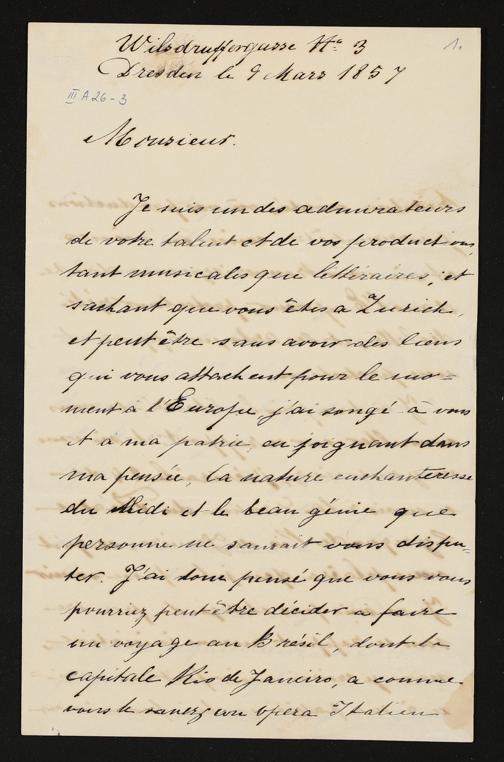 Wilsdruffergasse No 3
1.
Dresden le 9 Mars 1857
III A 26-3
Monsieur.
Je suis un des admirateurs
de votre talent et de vos productions
tant musicales que littéraires; et
sachant que vous êtes a Zurich,
et peut être sans avoir des liens
qui vous attachent pour le mo-
ment à l'Europe, j'ai songé à vous
et a ma patrie, en joignant dans
ma pensée, la nature enchanteresse
du Midi et le beau génie que
personne ne saurait vous dispu-
ter. J'ai donc pensé que vous vous
pourriez peut être décider a faire
un voyage au Brésil, dont la
capitale Rio de Janeiro, a comme
vous le savez, un opera Italien